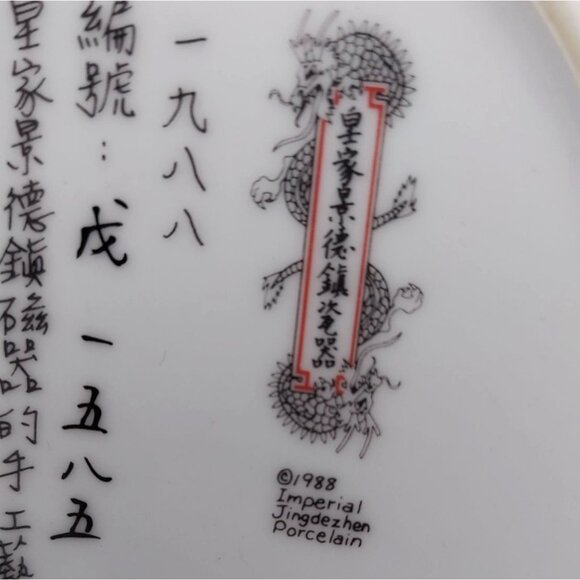 一九八八
編號：戊 一五八五
皇家景德鎮磁器的手工藝
皇家景德鎮瓷器
©1988
Imperial
Jingdezhen
Porcelain